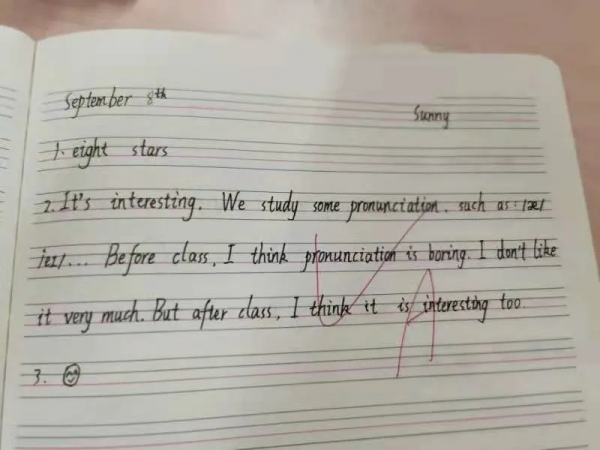 September 8th
Sunny
1. eight stars
2. It's interesting. We study some pronunciation. such as: /æ/
/eɪ/... Before class, I think pronunciation is boring. I don't like
it very much. But after class, I think it is interesting too.
A
3.